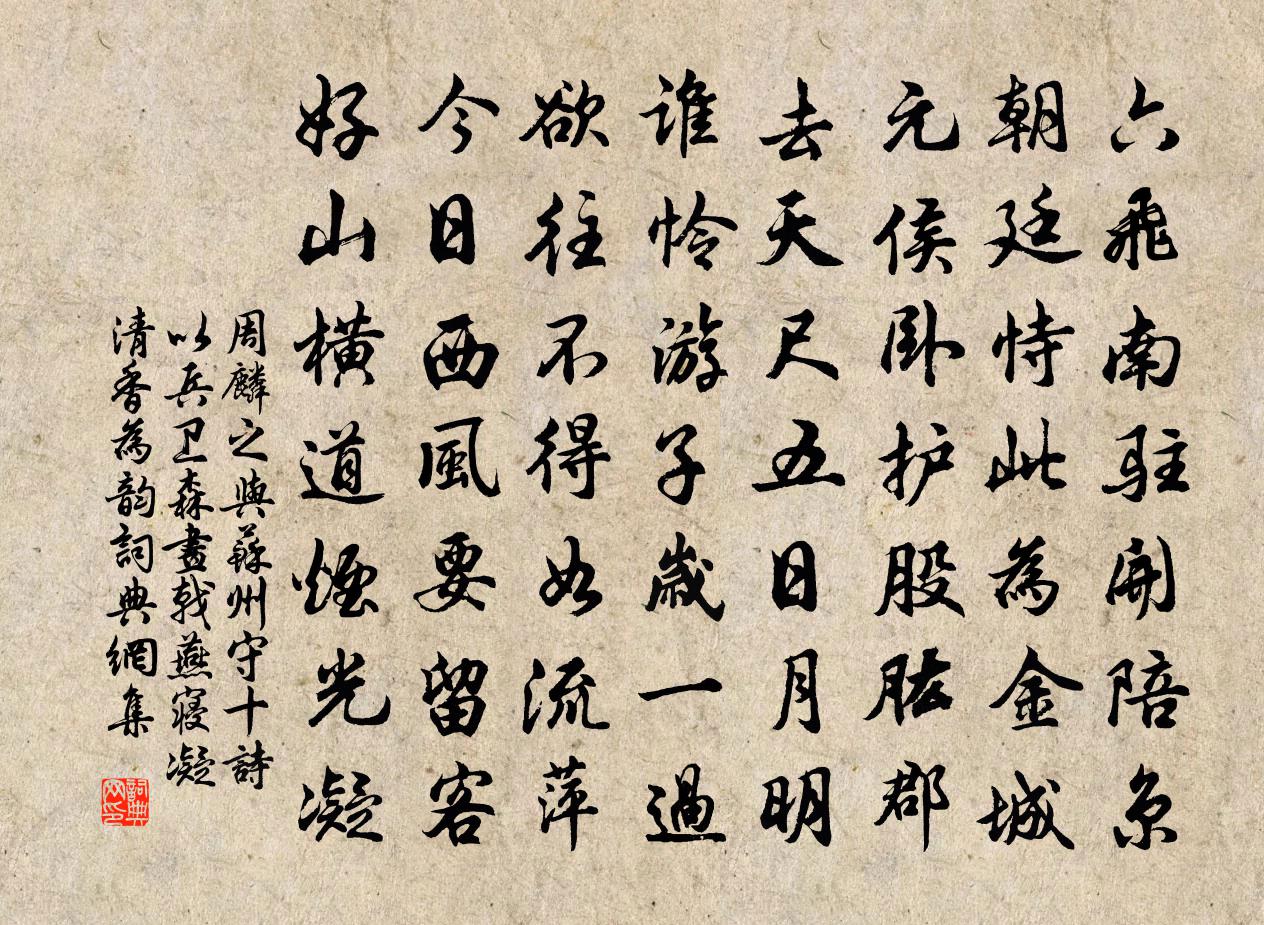 六飛南駐開陪京
朝廷恃此為金城
元侯卧护股肱郡
去天尺五日月明
誰怜游子歲一過
欲往不得如流萍
今日西風要留客
好山橫道煙光凝
周麟之與蘇州守十詩
以兵卫森畫戟燕寢凝
清香為韵詞典網集
詞典网印